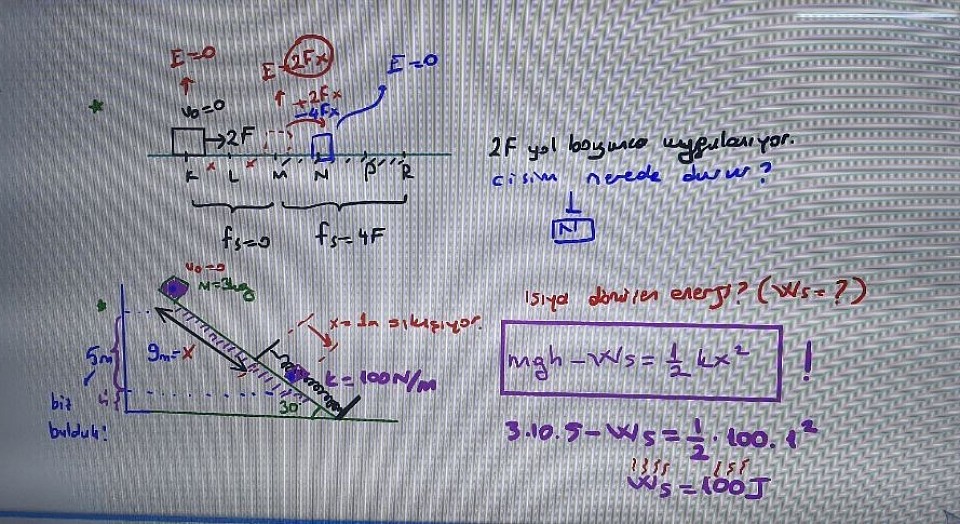 E=0
E=2Fx
E=0
v₀=0
+2Fx
-4Fx
→2F
K L M N P R
fs=0
fs=4F
2F yol boyunca uygulanıyor.
cisim nerede durur?
N
v₀=0
M=3kg
x=1m sıkışıyor.
5m
9m-x
k=100N/m
30
biz
bulduk!
Isıya dönüşen enerji? (Ws=?)
mgh-Ws=½kx² !
3.10.5-Ws=½.100.1²
Ws=100J